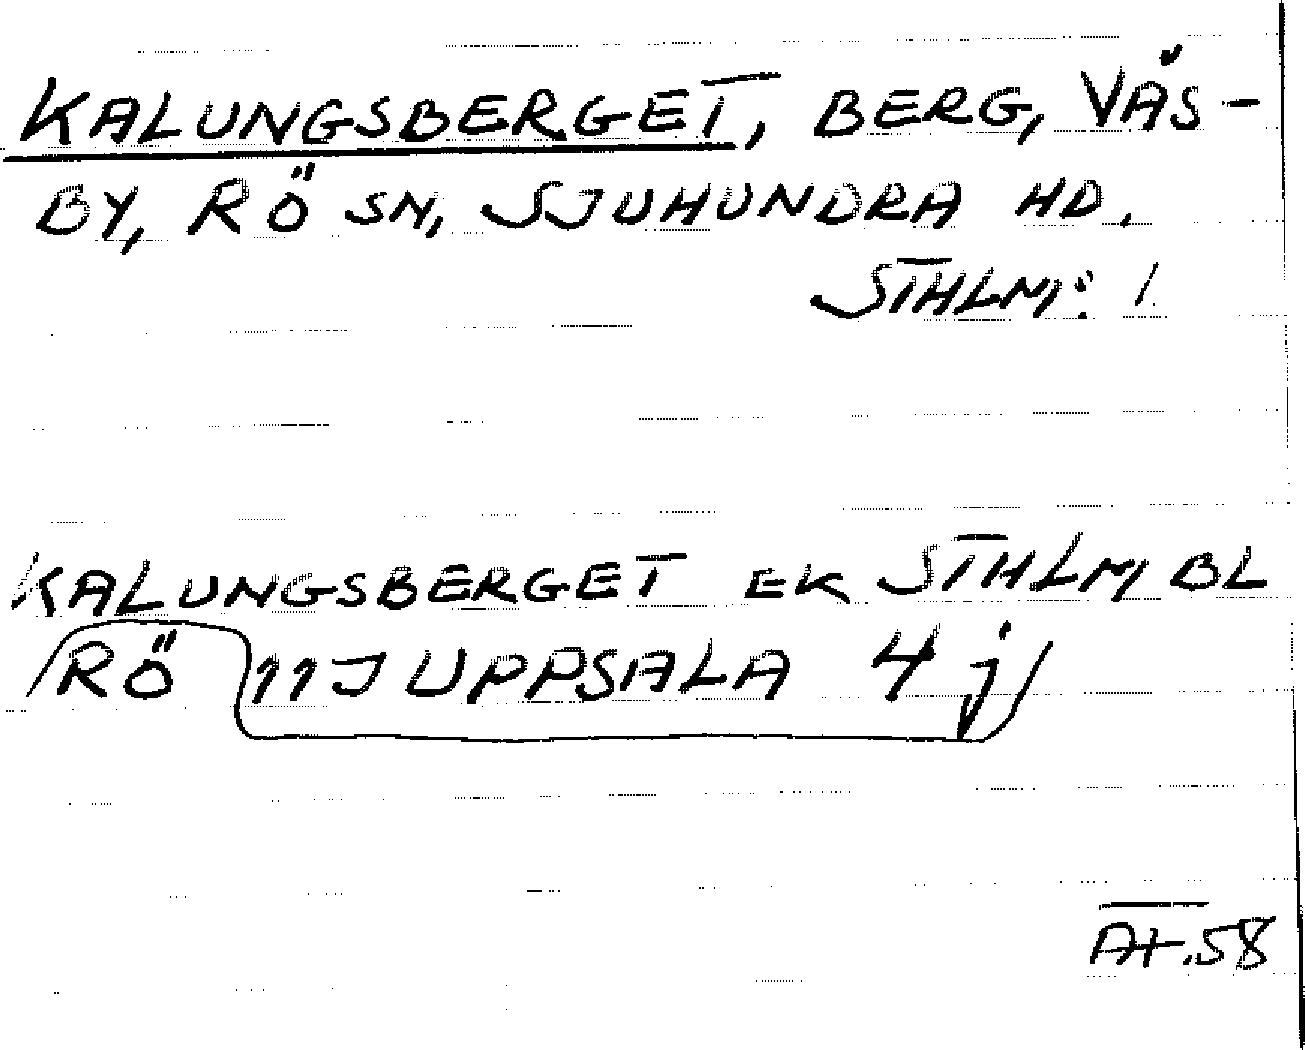 KALUNGSBERGET, BERG, VÄS-
BY, RÖ SN, SJUHUNDRA HD.
STHLM: 1.
KALUNGSBERGET EK STHLM, BL
RÖ 11J UPPSALA 4 j
AT.58